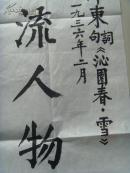 東詞句《沁園春·雪》
一九三六年二月
流人物